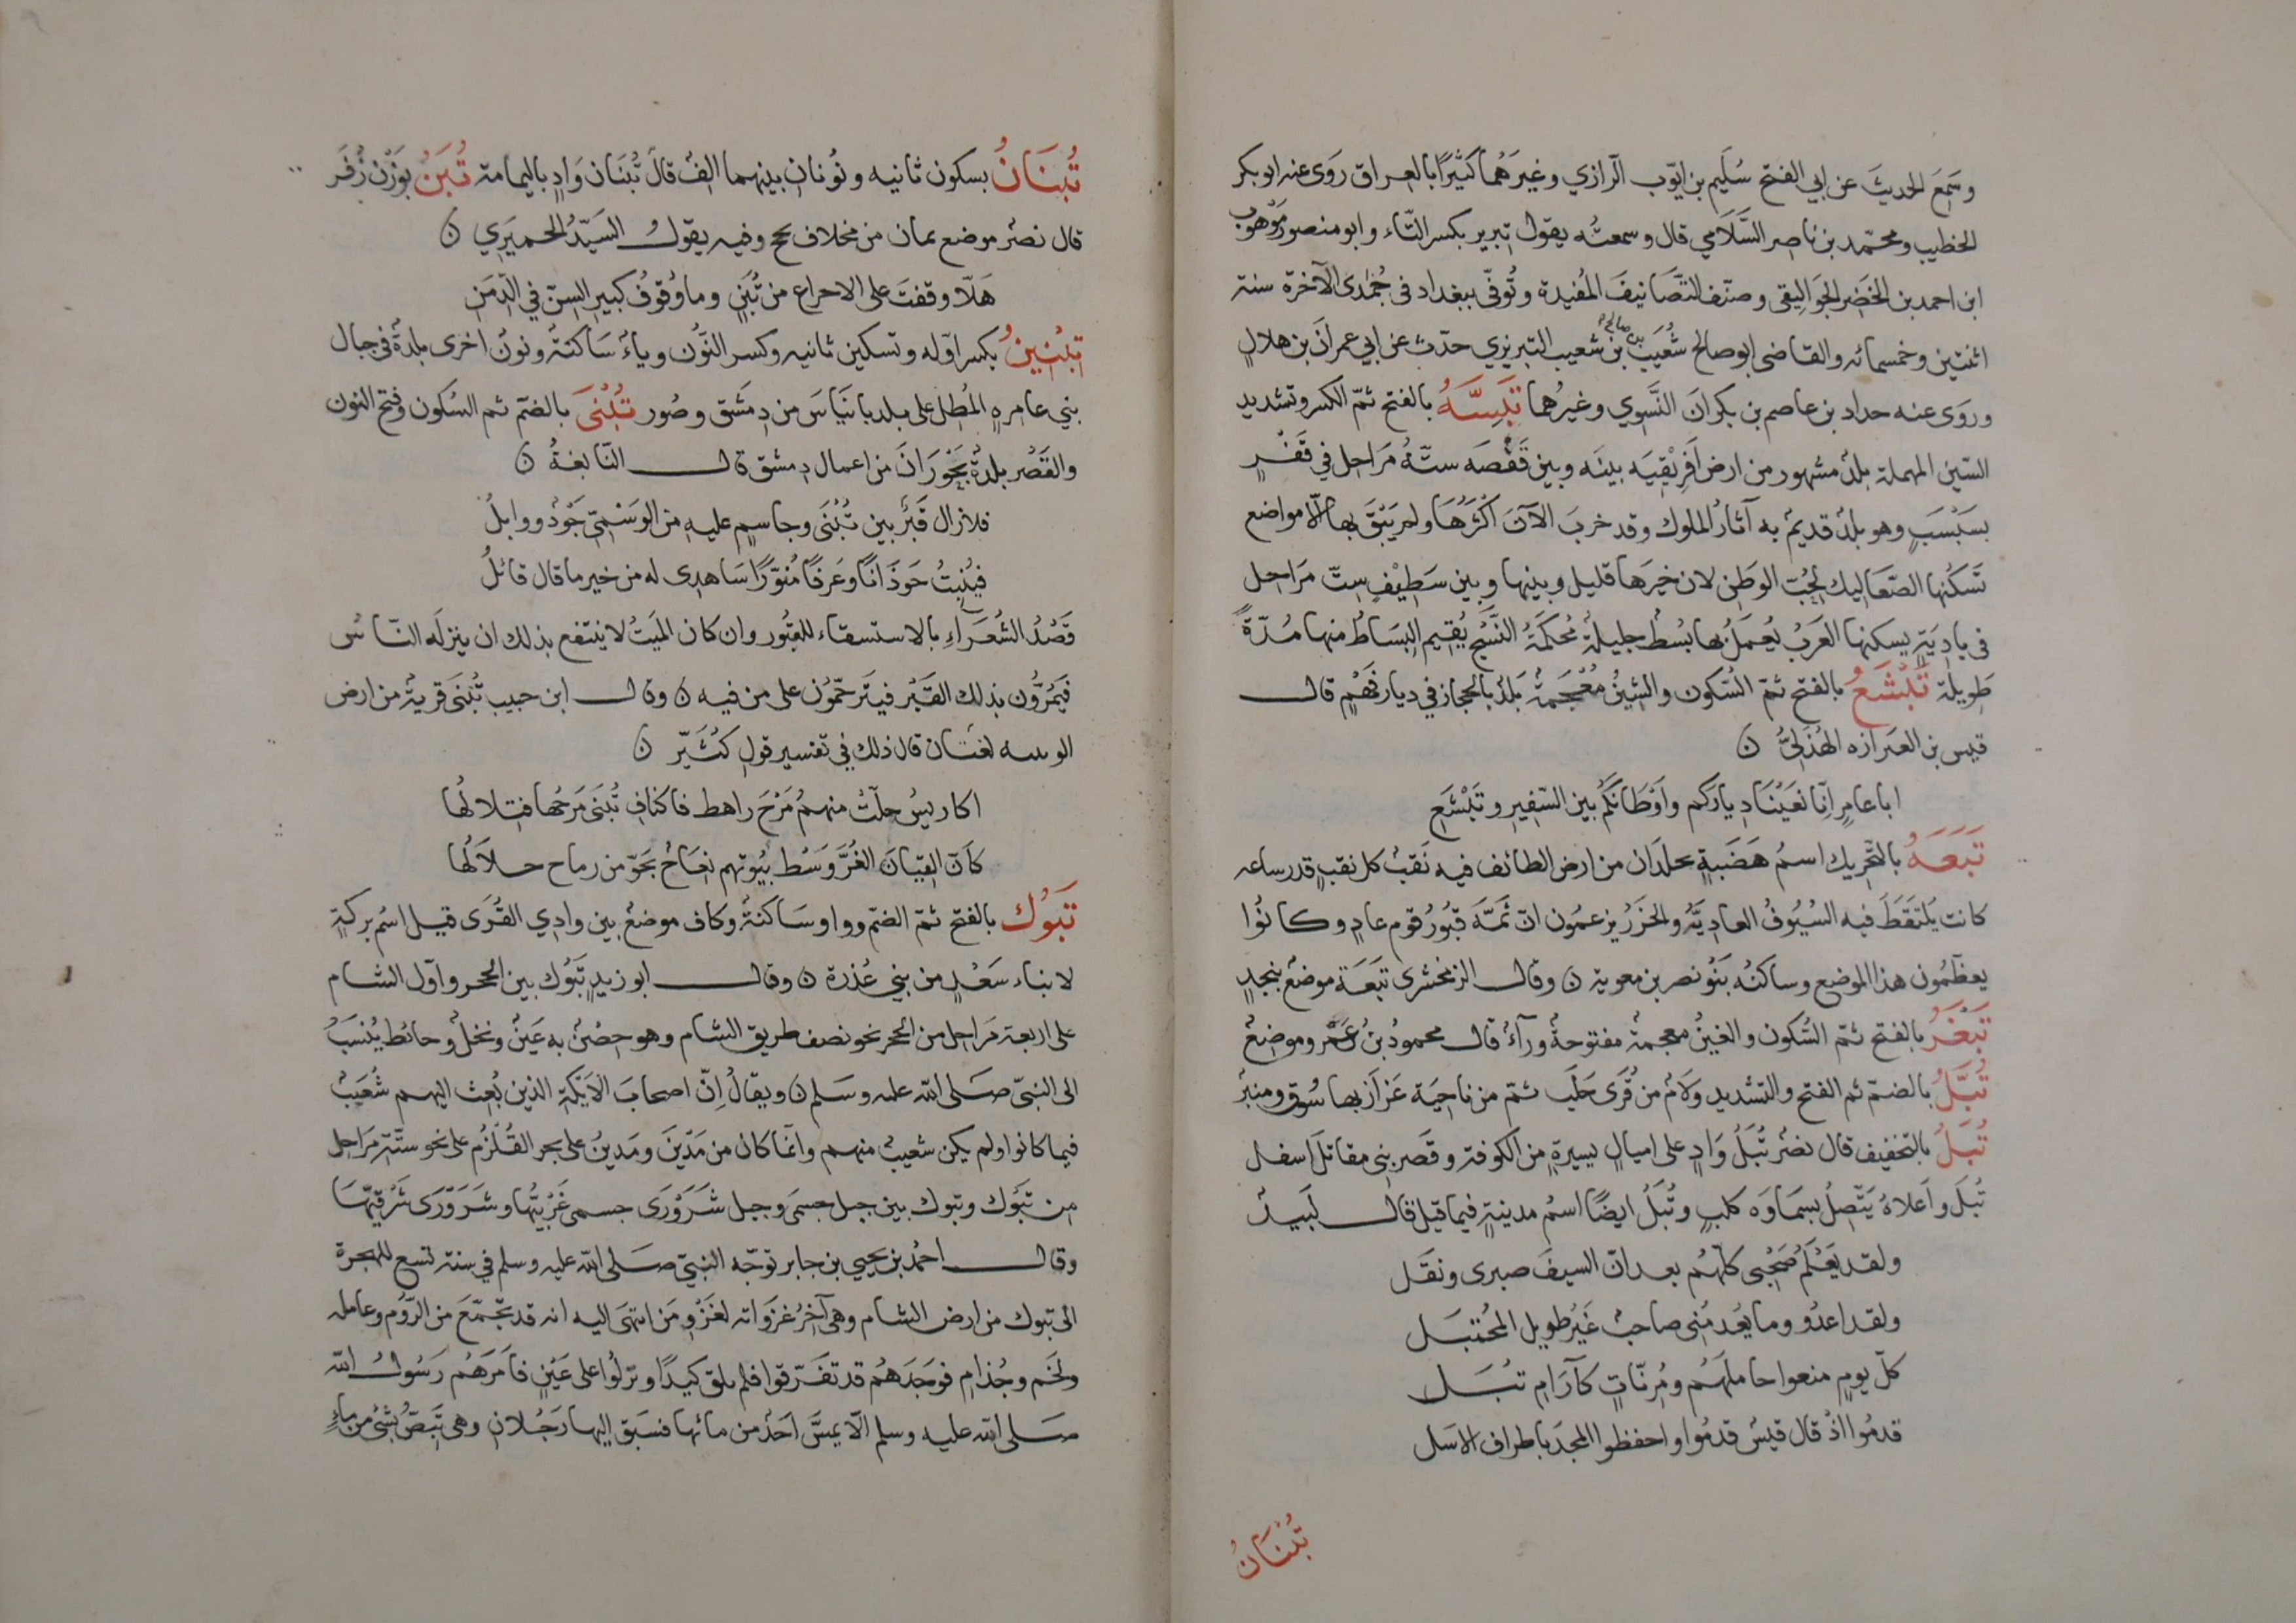 وسَمِعَ الحديثَ عن ابي الفتح سُلَيم بن ايّوب الرازي وغيرَهُما كثيرًا بالعراق رَوَى عنه ابو بكر
الخطيب ومحمّد بن ناصر السَّلَامي قال وسمعته يقول تبرير بكسر التّاء وابو منصور مَوْهوب
ابن احمد بن الخضَر الجوَاليقى وصنّف التّصَانيفَ المُفيدة وتُوفّى ببغداد فى جُمَدى الآخرة سنة
اثنتين وخمسمائه والقاضى ابو صالح شُعَيبُ بن صالح بن شعيب التبريزي حدّث عن ابي عمرانَ بن هلالٍ
وروَى عنه حداد بن عاصم بن بكرانَ النَّسوي وغيرُهما تَبِسَّهُ بالفتح ثمّ الكسر وتشديد
السّين المهملة بلدٌ مشهور من ارض اَفرِيْقِيَه بينَه وبين قَفْصَه ستّةُ مَرَاحل في قَفْرٍ
بسَبْسَبٍ وهو بلدٌ قديمٌ به آثارُ الملوك وقد خربَ الآنَ اكْثرُهَا ولم يَبْقَ بها الّا مواضع
تَسكنُها الصّعَاليك لحُبّ الوَطَن لان خيرَها قليل وبينها وبين سَطِيْفٍ ستّ مرَاحل
فى بادِيَةٍ يسكنها العَرَبُ يُعمَلُ بها بُسُطٌ جليلةٌ مُحكَمَةُ النَّسْجِ يُقيم البِسَاطُ منها مُدّةً
طويلة تَبْشَعُ بالفتح ثمّ السُّكون والشينُ مُعْجَمةٌ بَلدٌ بالحجاز في ديار فَهْمٍ قال
قيس بن العيزاره الهُذَليُّ ن
ابا عامرٍ اِنّا بَغَيْنَا دياركم واَوْطانَكُم بين السّفِيرِ وتَبْشَعِ
تَبَعَهُ بالتّحريك اسمُ هَضَبةٍ بجلدَان من ارض الطائف فيه نَقبٌ كل نقبٍ قدر ساعه
كانت يُلتَقَطَ فيه السُيُوفُ العادِيَّهُ والخَرَزُ يزعمُون انّ ثَمَّهَ قبُورُ قوم عادٍ وكانُوا
يعظّمُون هذا الموضع وساكنُه بَنُو نصر بن معوية ن وقال الزمخشرى تَبَعَة موضعٌ بنجدٍ
تَبْغَرُ بالفتح ثمّ السُّكون والغينُ معجمةٌ مفتوحةٌ ورآءٌ قال محمودُ بنُ عَمْرو موضِعٌ
تُبَّلُ بالضمّ ثم الفتح والتشديد ولَامٌ من قُرَى حَلَب ثمّ من ناحيَة عَزَازَ بها سُوق ومنبرٌ
تُبَلُ بالتخفيف قال نصرٌ تُبَلُ وَادٍ على اميالٍ يسيرةٍ من الكوفة وقَصر بنى مقاتل اسفل
تُبلَ واَعلاهُ يَتّصِلُ بسَماوَه كلبٍ وتُبَلُ ايضًا اسمُ مدينةٍ فيما قيل قال لَبيدٌ
ولقد يَعْلَمُ صَحْبِى كلّهُم بعدانّ السيفَ صبرى ونقَل
ولقد اعدُو وما يُعدِمُنى صاحبٌ غَيْرُ طويل المُحْتبَل
كلَّ يومٍ منعوا حاملَهُم ومُرِنّاتٍ كآرَامِ تبُبَل
قدمُوا اذْ قال قيسٌ قدمُوا واحفظوا المجدَ باطراف الاَسَل
تُبْنَانُ
تُبْنَانُ بسكون ثانيه ونُونان بينهما الفٌ قالَ تُبْنَان وَادٍ باليمامة تُبَنُ بوَزْن زُفَر
قال نصرٌ موضع يمان من مخلاف لحج وفيه يقول السَيّدُ الحميَري ن
هَلّا وقفتَ على الاجراع من تُبَنٍ وما وُقوفُ كبيرِ السنّ في الدِّمَنِ
تِبْنِينُ بكسر اوّله وتسكين ثانيه وكسر النّون وياءٌ سَاكنةٌ ونونٌ اخرى بلدةٌ فى جبال
بني عامره المُطلّ على بلد بانيَاسَ من دِمَشق وصُور تُبْنَى بالضمّ ثم السُكون وفتح النون
والقَصْر بلدةٌ بحَوْرَانَ من اعمال دمشق قال النّابغةُ ن
فلا زال قَبْرٌ بين تُبْنَى وجاسمٍ عليهِ من الوَسْمِىّ جَوْدٌ ووابلُ
فيُنبِتُ حَوذَانًا وعَرفًا مُنوّرًا سَاهدى له من خير ما قال قائلُ
قَصْدُ الشُعَرَاءِ بالاستسقاء للقبُور وان كان الميتُ لا ينتفع بذلك ان ينزلَه النّاسُ
فيَمُرُّون بذلك القَبْر فيتَرحّمُون على من فيه ن وقال ابن حبيب تُبْنَى قريةٌ من ارض
لغسّان قال ذلك في تفسير قول كُثَيّر ن
اكاريسُ حلّتْ منهم مَرْجَ راهط فاكنافِ تُبنَى مَرجَها فتلالُها
كاَنّ القيانَ الغُرَّ وَسْط بيُوتهم نعَاجٌ بجَوّ من رماح حلالُها
تَبُوْك بالفتح ثمّ الضمّ وواو سَاكنةٌ وكاف موضعٌ بين وادي القُرَى قيل اسمُ بركةٍ
لابناء سَعْدٍ من بني عُذرة ن وقال ابو زيدٍ تَبُوك بين الحجر واوّل الشام
على اربعة مَراحل من الحجر نحو نصف طريق الشام وهو حِصْنٌ به عَينٌ ونخلٌ وحائط يُنسَبُ
الى النبيّ صَلى الله عليه وسَلم ن ويقالُ اِنّ اصحابَ الاَيكَةِ الذين بُعِث اليهم شُعَيبٌ
فيها كانوا ولم يكن شعيبٌ منهم وانّما كان من مَدْيَنَ ومَدينُ على بحر القُلْزُم على نحو ستّة مَرَاحل
من تبُوك وتبوك بين جبل حِسمَى وجبل شَرَوْرَى حسمى غَرْبيّها وشَرَوْرَى شَرْقيّها
وقال احمدُ بن يحيي بن جابر توَجّه النبيّ صَلى الله عليه وسلم في سنة تسع للهجرة
الى تبوك من ارض الشام وهي آخِرُ غزوَاته لغَزْوِ مَن انتهى اليه انه قد تجَمّعَ من الرّوم وعامله
ولخم وجُذام فوَجَدَهُم قد تفَرّقوا فلم يلق كيدًا ونزلُوا على عَيْنٍ فاَمَرَهُم رَسُولُ الله
صَلى الله عليه وسلم الّا يمَسَّ اَحَدٌ من مائها فسَبَق اليها رَجُلان وهي تَبِضُّ بشئ من ماءٍ